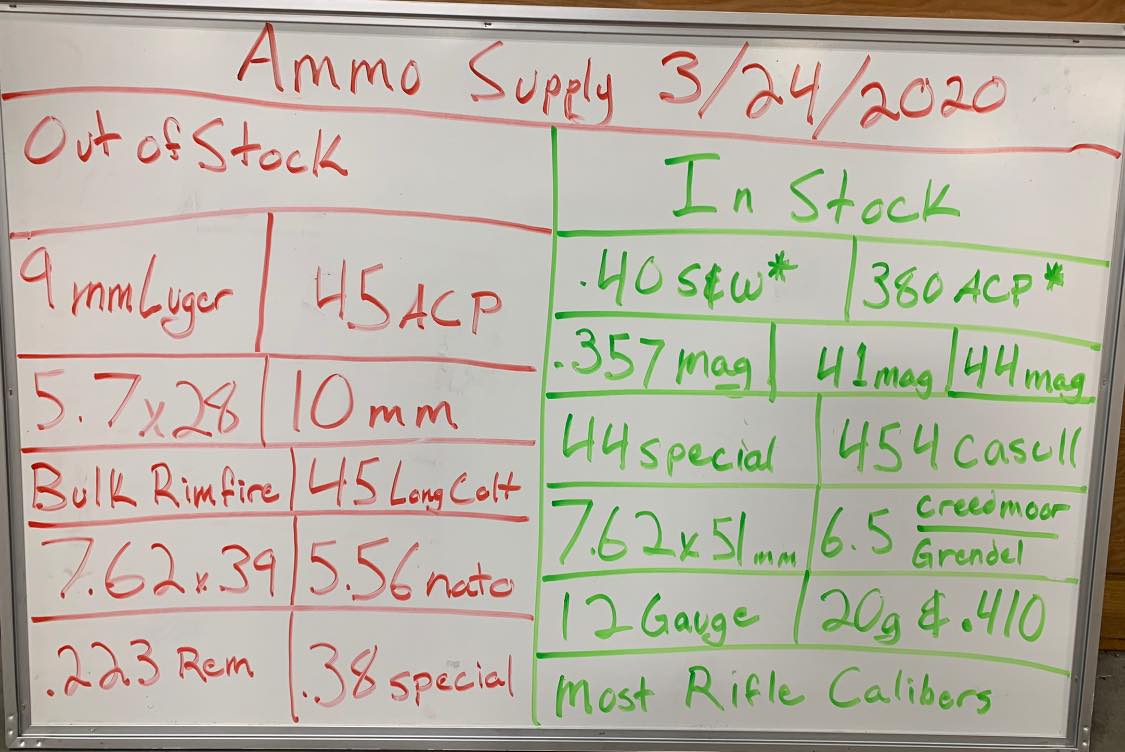 Ammo Supply 3/24/2020
Out of Stock
9mm Luger 45 ACP
5.7x28 10mm
Bulk Rimfire 45 Long Colt
7.62x39 5.56 nato
.223 Rem .38 special
In Stock
.40 S&W* 380 ACP*
.357 mag 41 mag 44 mag
44 special 454 Casull
7.62x51mm 6.5 Creedmoor
Grendel
12 Gauge 20g & .410
Most Rifle Calibers